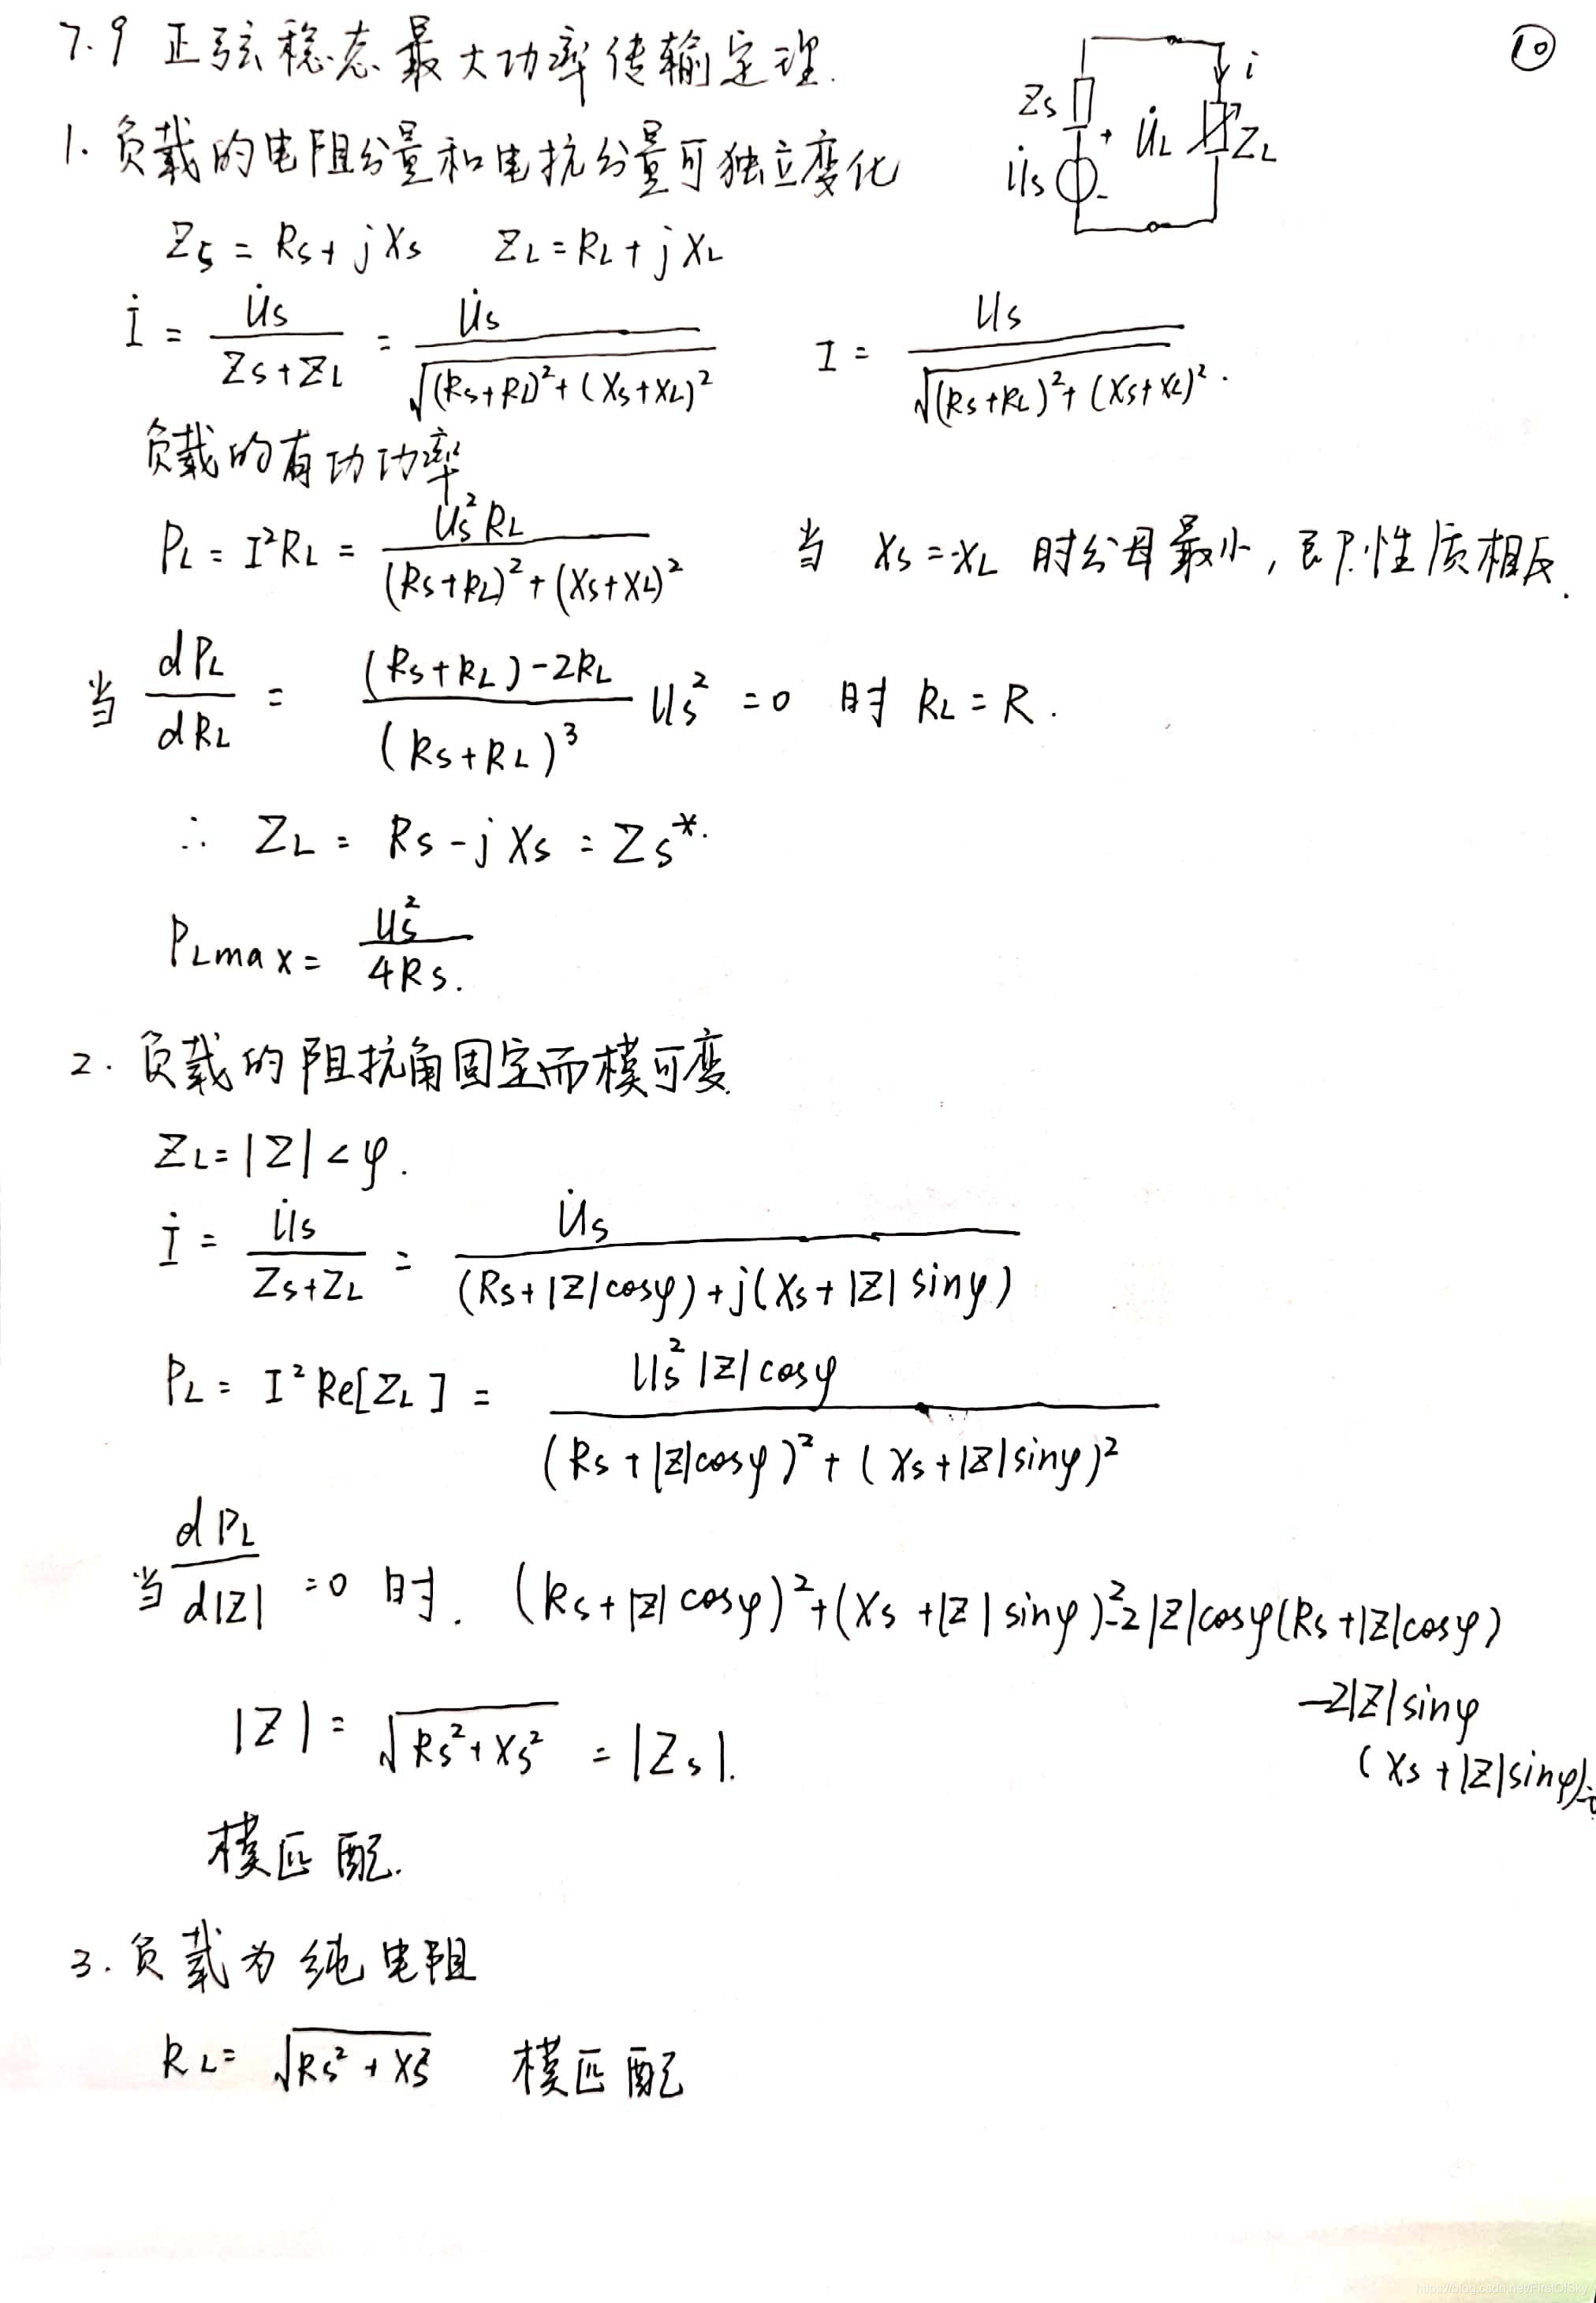 7.9 正弦稳态最大功率传输定理. ⑩
1. 负载的电阻分量和电抗分量可独立变化
Zs + U̇L i ZL
U̇s -
Zs = Rs + jXs ZL = RL + jXL
İ = U̇s / (Zs+ZL) = U̇s / √((Rs+RL)²+(Xs+XL)²) I = Us / √((Rs+RL)²+(Xs+XL)²).
负载的有功功率
PL = I²RL = Us²RL / ((Rs+RL)²+(Xs+XL)²) 当 Xs=-XL 时分母最小, 即性质相反.
当 dPL/dRL = ((Rs+RL)-2RL) / (Rs+RL)³ Us² = 0 时 RL = R.
∴ ZL = Rs - jXs = Zs*.
PLmax = Us² / 4Rs.
2. 负载的阻抗角固定而模可变.
ZL = |Z|∠φ.
İ = U̇s / (Zs+ZL) = U̇s / ((Rs+|Z|cosφ)+j(Xs+|Z|sinφ))
PL = I²Re[ZL] = Us²|Z|cosφ / ((Rs+|Z|cosφ)²+(Xs+|Z|sinφ)²)
当 dPL/d|Z| = 0 时. (Rs+|Z|cosφ)²+(Xs+|Z|sinφ)²-2|Z|cosφ(Rs+|Z|cosφ)
-2|Z|sinφ
(Xs+|Z|sinφ)=0
|Z| = √(Rs²+Xs²) = |Zs|.
模匹配.
3. 负载为纯电阻
RL = √(Rs²+Xs²) 模匹配
https://blog.csdn.net/FirstOfSky